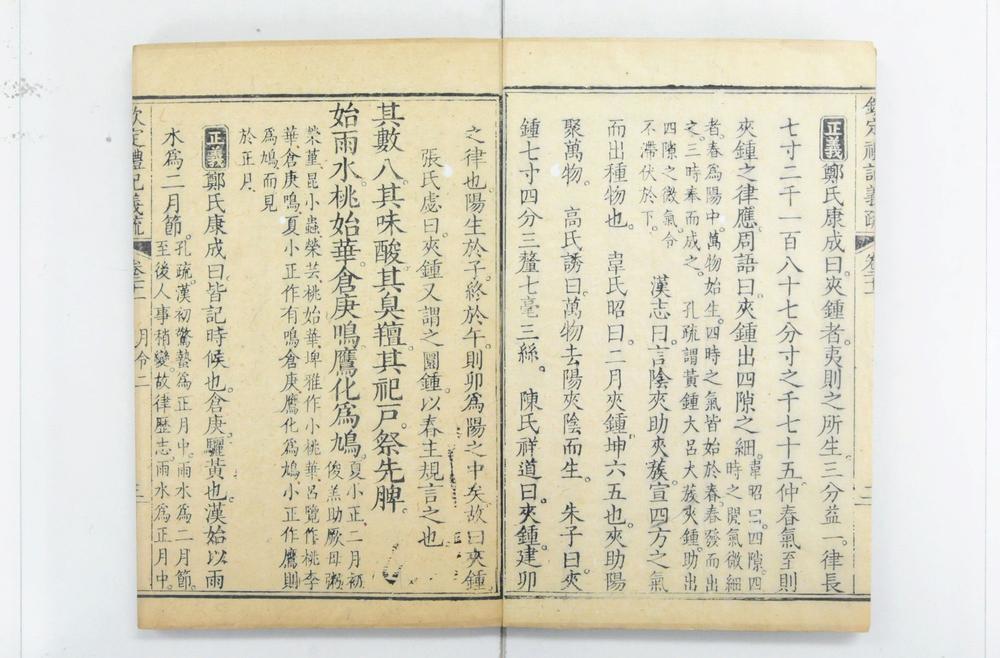 欽定禮記義疏
卷二十二
二
正義鄭氏康成曰夾鍾者夷則之所生三分益一律長
七寸二千一百八十七分寸之千七十五仲春氣至則
夾鍾之律應周語曰夾鍾出四隙之細
韋昭曰四隙四
時之間氣微細
者春爲陽中萬物始生四時之氣皆始於春春發而出
之三時奉而成之 孔疏謂黃鍾大呂大蔟夾鍾助出
四隙之微氣令
不滯伏於下
漢志曰言陰夾助夾蔟宣四方之氣
而出種物也 韋氏昭曰二月夾鍾坤六五也夾助陽
聚萬物 高氏誘曰萬物去陽夾陰而生 朱子曰夾
鍾七寸四分三釐七毫三絲 陳氏祥道曰夾鍾建卯
之律也陽生於子終於午則卯爲陽之中矣故曰夾鍾
張氏虙曰夾鍾又謂之圜鍾以春主規言之也
其數八其味酸其臭羶其祀戶祭先脾
始雨水桃始華倉庚鳴鷹化爲鳩
夏小正二月初
俊羔助厥母粥
榮菫昆小蟲榮芸桃始華埤雅作小桃華呂覽作桃李
華倉庚鳴夏小正作有鳴倉庚鷹化爲鳩小正作鷹則
爲鳩而見
於正月
正義鄭氏康成曰皆記時候也倉庚驪黃也漢始以雨
水爲二月節
孔疏漢初驚蟄爲正月中雨水爲二月節
至後人事稍變故律歷志雨水爲正月中
欽定禮記義疏
月令二
三